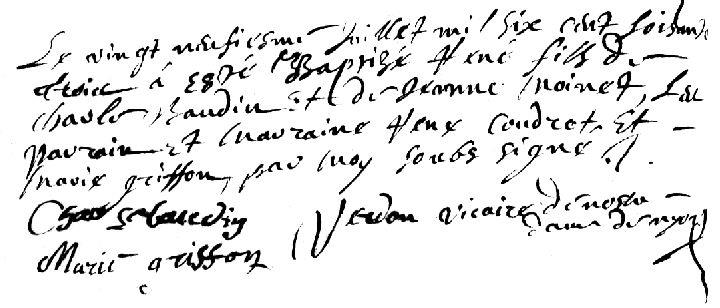 Le vingt neufiesme Juillet mil six cent soisante
trois à esté Baptisé René fils de
Charles Baudin Et de Jeanne Moinet, Les
parrain Et Marraine René Coudret Et
Marie griffon, par Moy soubs signé
Charles Baudin Verdon vicaire de nostre
dame de
Marie griffon